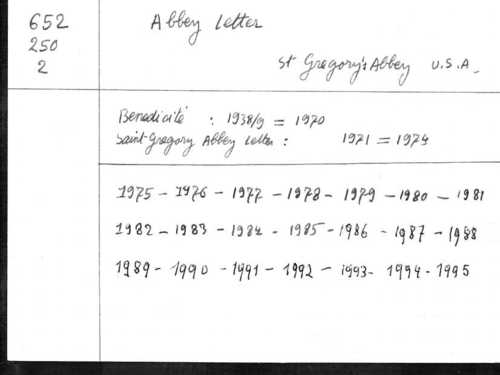 652
250
2
Abbey Letter
St Gregory's Abbey U.S.A.
Benedicité : 1938/9 = 1970
Saint-Gregory Abbey Letter : 1971 = 1974
1975 - 1976 - 1977 - 1978 - 1979 - 1980 - 1981
1982 - 1983 - 1984 - 1985 - 1986 - 1987 - 1988
1989 - 1990 - 1991 - 1992 - 1993 - 1994 - 1995